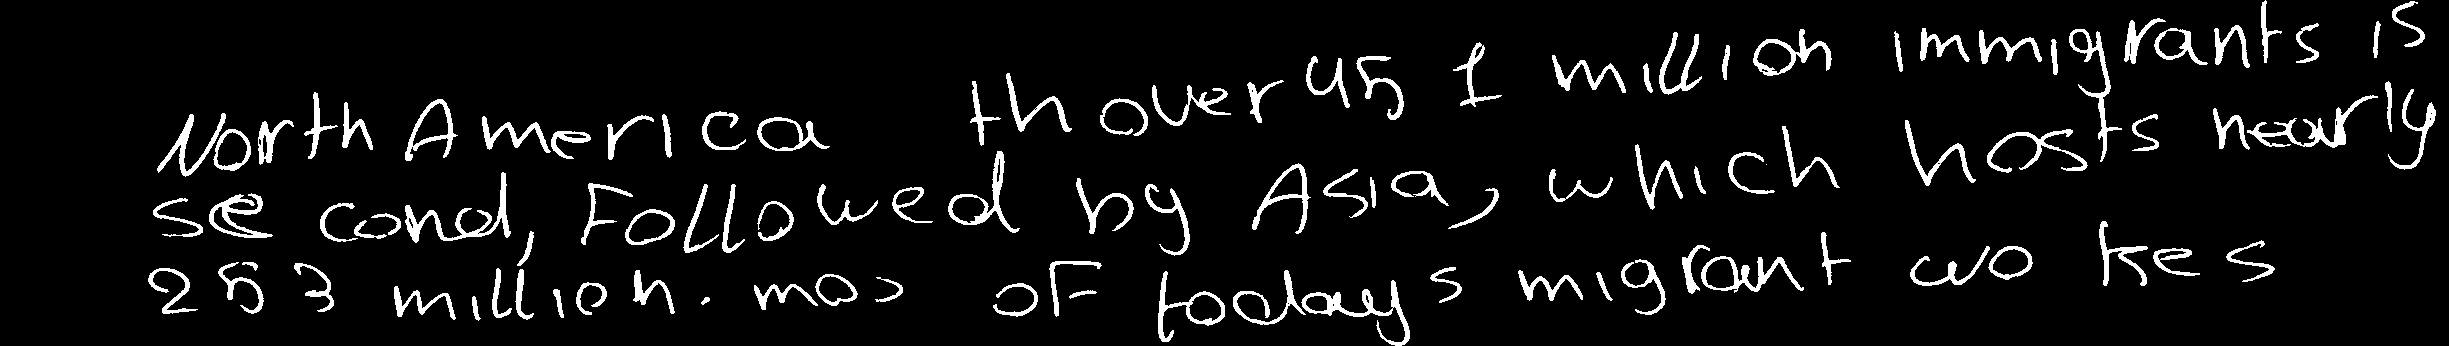 North America th over 45 1 million immigrants is
second, Followed by Asia, which hosts nearly
253 million. mos of todays migrant wo kes